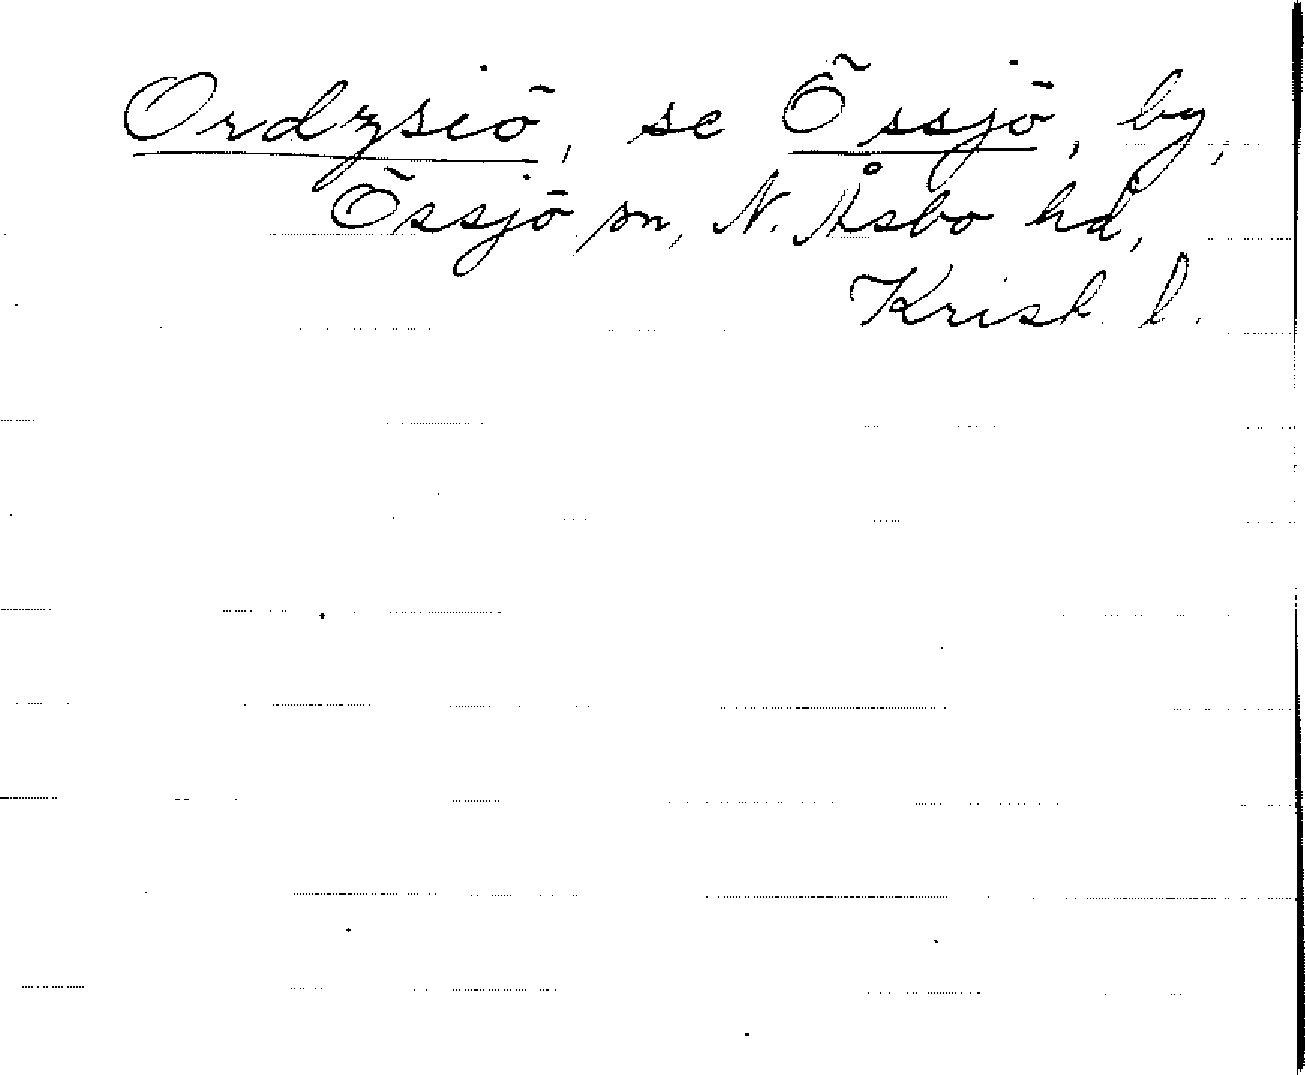 Ordzsiö, se Össjö, by,
Össjö sn, N. Åsbo hd,
Krist. l.